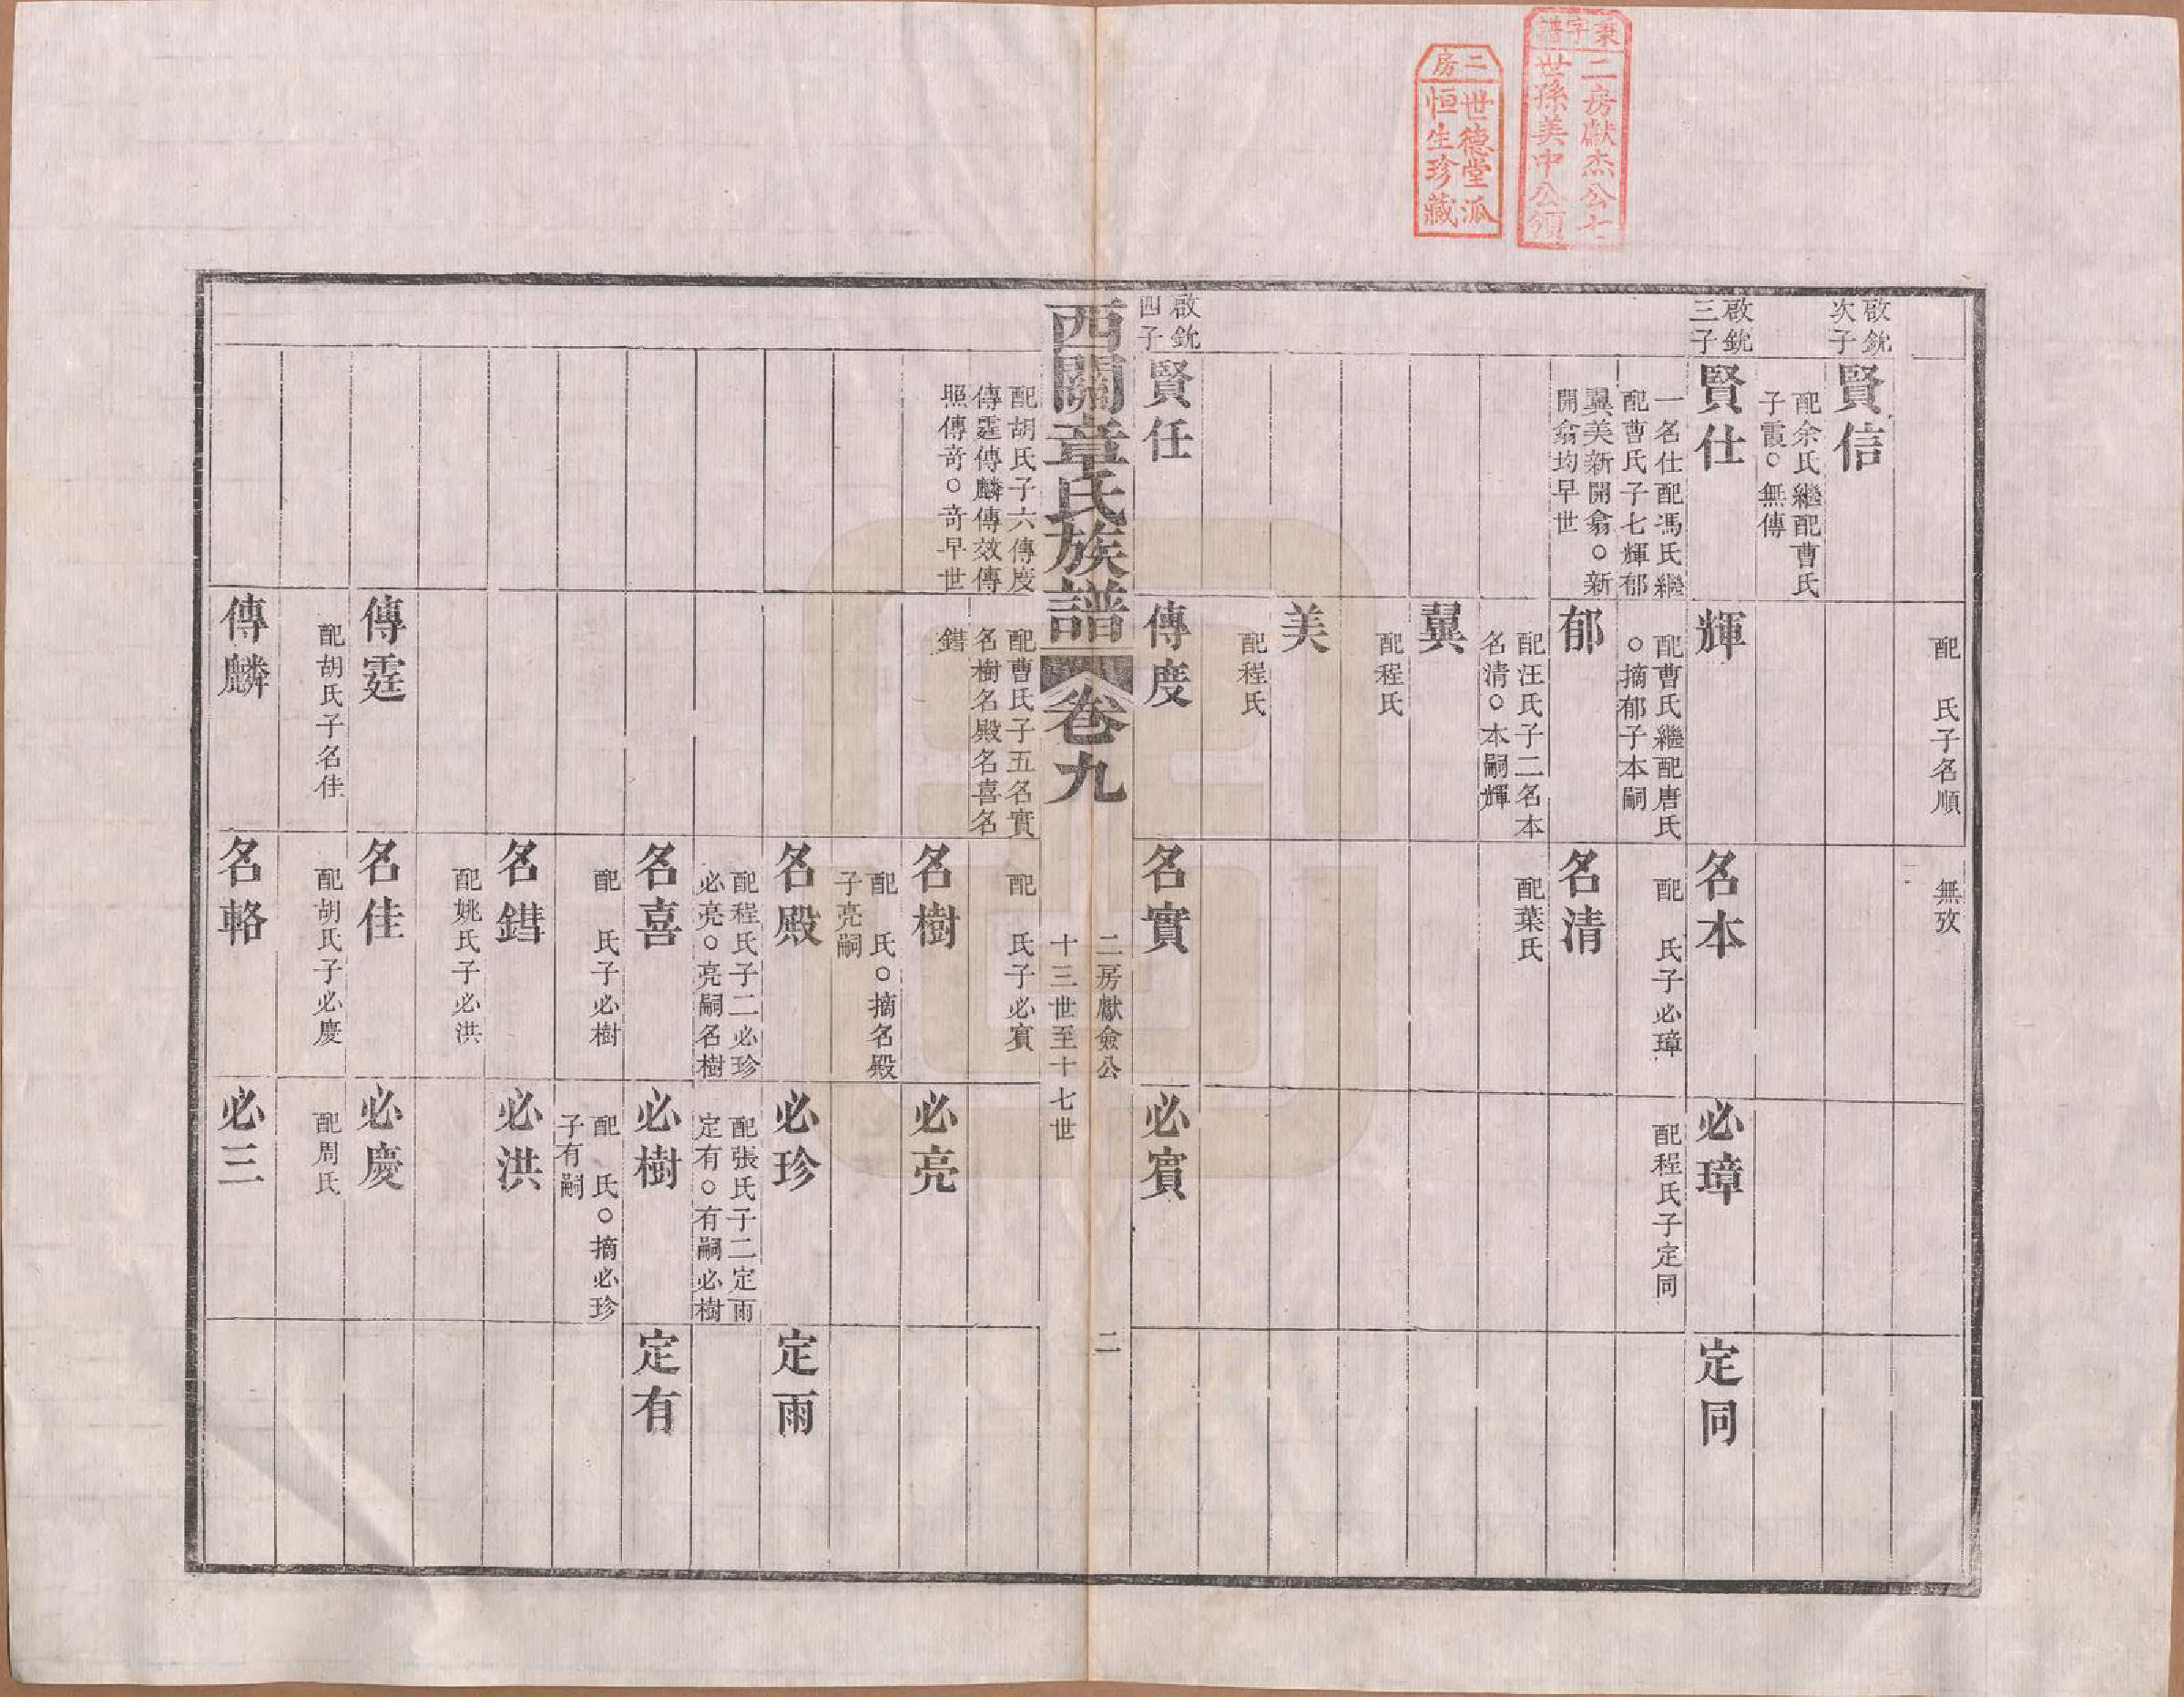 秉字譜
二房獻杰公七
世孫美中公領
二房
世德堂派
恒生珍藏
配　氏子名順
無攷
啟銃
次子
賢信
配余氏繼配曹氏
子霞○無傳
啟銃
三子
賢仕
一名仕配馮氏繼
配曹氏子七輝郁
翼美新開翕○新
開翕均早世
輝
配曹氏繼配唐氏
○摘郁子本嗣
名本
配　氏子必璋
必璋
配程氏子定同
定同
郁
配汪氏子二名本
名清○本嗣輝
名清
配葉氏
翼
配程氏
美
配程氏
啟銃
四子
賢任
傳度
名實
必賓
西關章氏族譜
卷九
二房獻僉公
十三世至十七世
二
配胡氏子六傳度
傳霆傳麟傳效傳
照傳奇○奇早世
配曹氏子五名實
名樹名殿名喜名
錯
配　氏子必賓
名樹
配　氏○摘名殿
子亮嗣
必亮
名殿
配程氏子二必珍
必亮○亮嗣名樹
必珍
配張氏子二定雨
定有○有嗣必樹
定雨
名喜
配　氏子必樹
必樹
配　氏○摘必珍
子有嗣
定有
名錯
配姚氏子必洪
必洪
傳霆
配胡氏子名佳
名佳
配胡氏子必慶
必慶
配周氏
傳麟
名輅
必三